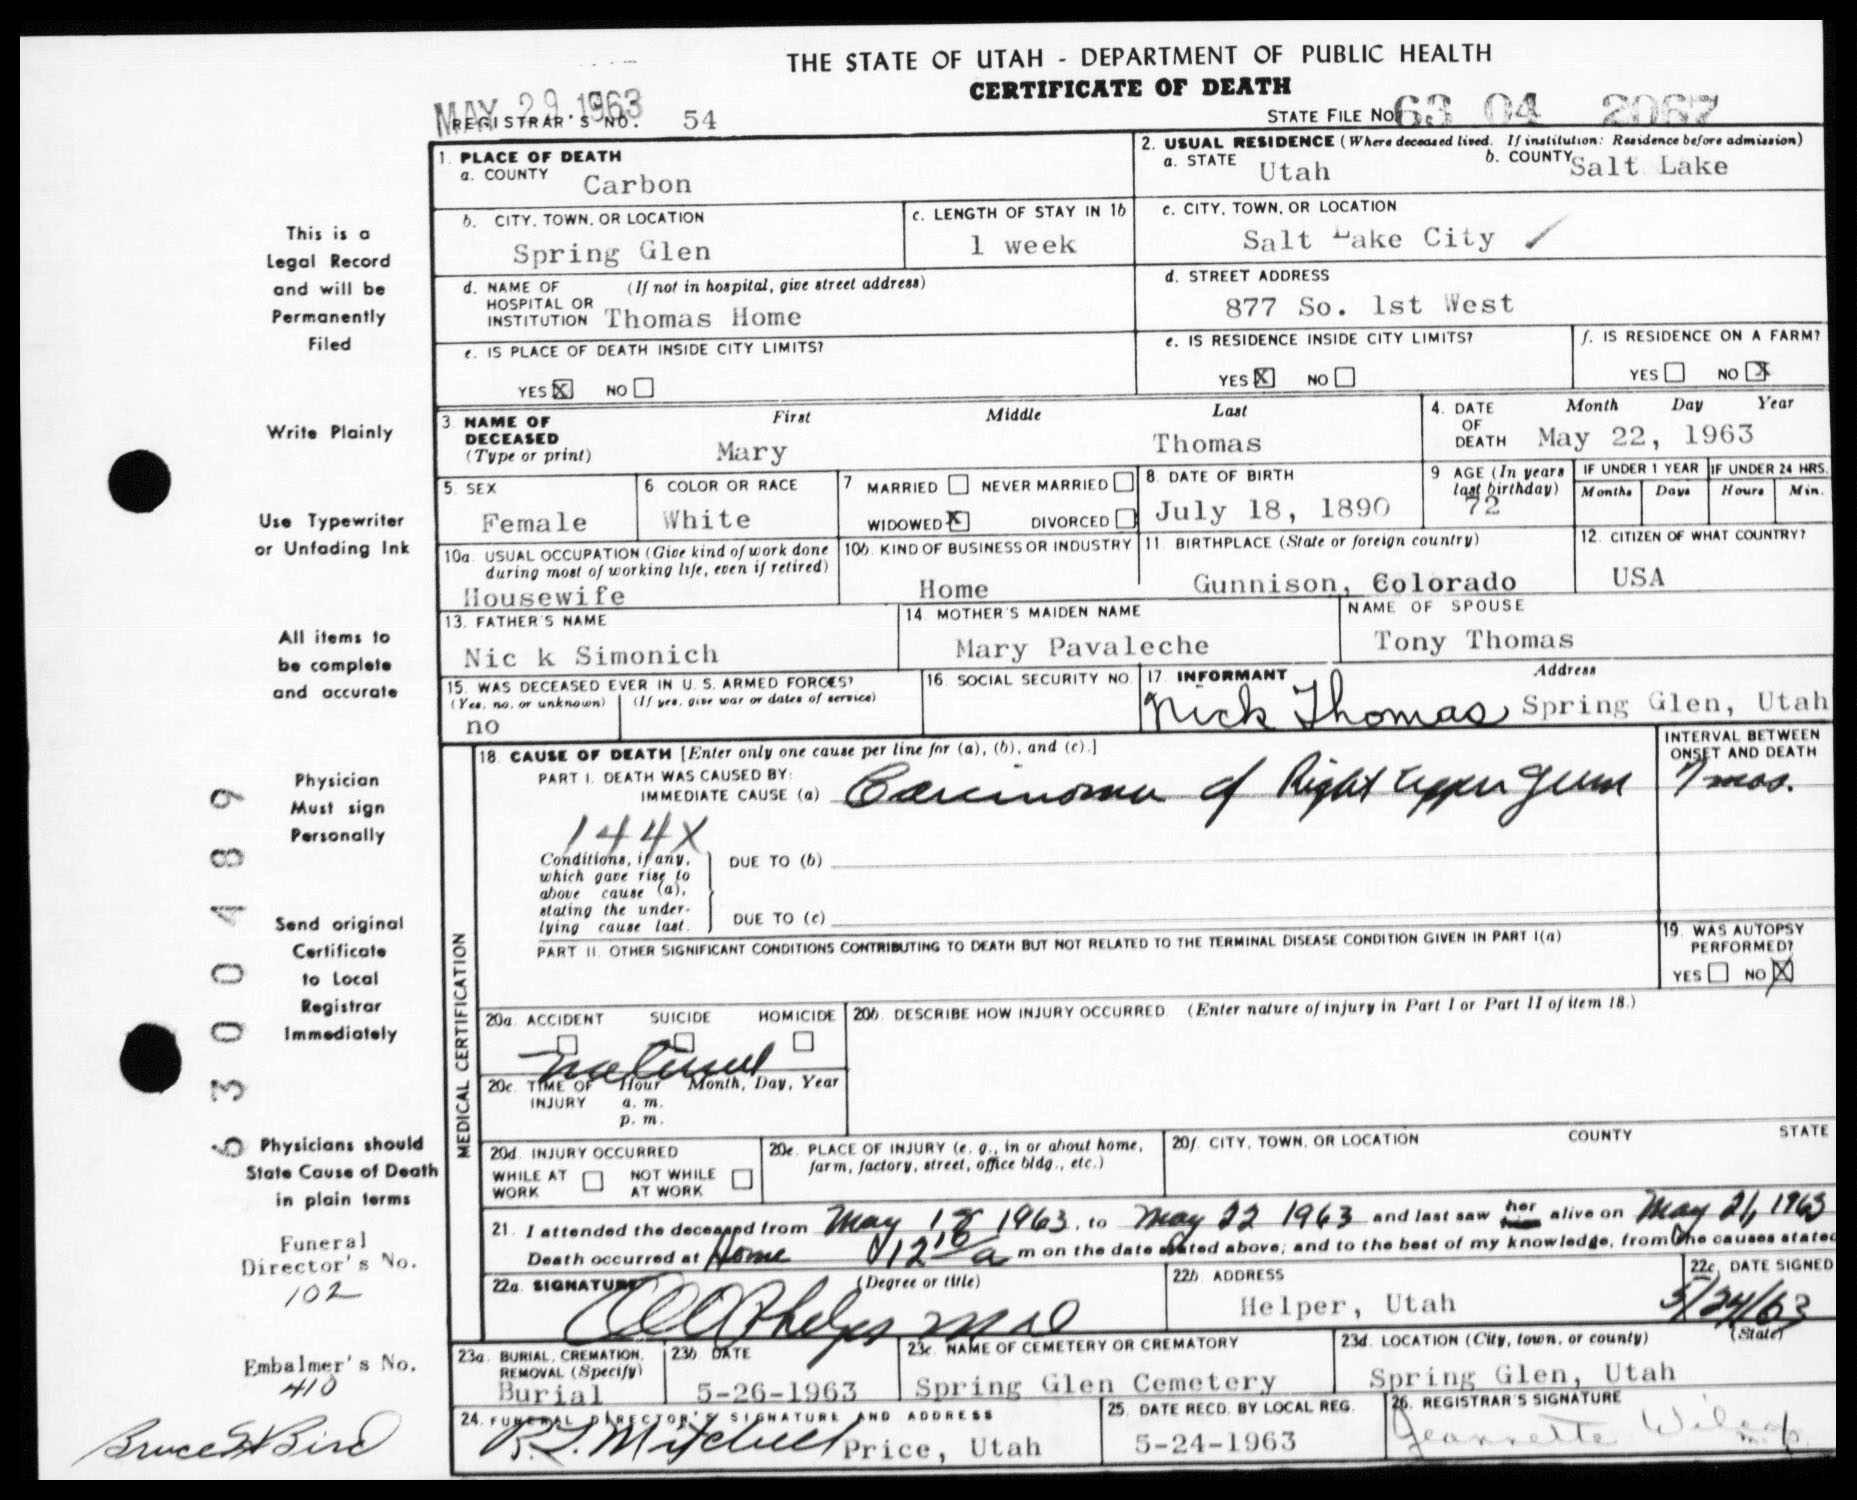 THE STATE OF UTAH - DEPARTMENT OF PUBLIC HEALTH
CERTIFICATE OF DEATH
MAY 29 1963
REGISTRAR'S NO. 54
STATE FILE NO. 63 04 2067
1. PLACE OF DEATH
a. COUNTY Carbon
2. USUAL RESIDENCE (Where deceased lived. If institution: Residence before admission)
a. STATE Utah b. COUNTY Salt Lake
b. CITY, TOWN, OR LOCATION Spring Glen
c. LENGTH OF STAY IN 1b 1 week
c. CITY, TOWN, OR LOCATION Salt Lake City
d. NAME OF HOSPITAL OR INSTITUTION (If not in hospital, give street address) Thomas Home
d. STREET ADDRESS 877 So. 1st West
e. IS PLACE OF DEATH INSIDE CITY LIMITS?
YES X NO
e. IS RESIDENCE INSIDE CITY LIMITS?
YES X NO
f. IS RESIDENCE ON A FARM?
YES NO X
3 NAME OF DECEASED (Type or print) First Middle Last
Mary Thomas
4. DATE OF DEATH Month Day Year
May 22, 1963
5. SEX Female
6 COLOR OR RACE White
7 MARRIED NEVER MARRIED
WIDOWED X DIVORCED
8. DATE OF BIRTH July 18, 1890
9 AGE (In years last birthday) 72
IF UNDER 1 YEAR Months Days
IF UNDER 24 HRS. Hours Min.
10a. USUAL OCCUPATION (Give kind of work done during most of working life, even if retired)
Housewife
10b. KIND OF BUSINESS OR INDUSTRY
Home
11. BIRTHPLACE (State or foreign country)
Gunnison, Colorado
12. CITIZEN OF WHAT COUNTRY?
USA
13. FATHER'S NAME
Nic k Simonich
14. MOTHER'S MAIDEN NAME
Mary Pavaleche
NAME OF SPOUSE
Tony Thomas
15. WAS DECEASED EVER IN U. S. ARMED FORCES?
(Yes, no, or unknown) (If yes, give war or dates of service)
no
16. SOCIAL SECURITY NO.
17. INFORMANT Address
Nick Thomas Spring Glen, Utah
MEDICAL CERTIFICATION
18. CAUSE OF DEATH [Enter only one cause per line for (a), (b), and (c).]
INTERVAL BETWEEN ONSET AND DEATH
PART I. DEATH WAS CAUSED BY:
IMMEDIATE CAUSE (a) Carcinoma of Right Upper Gum 7 mos.
144X
Conditions, if any, which gave rise to above cause (a), stating the underlying cause last.
DUE TO (b)
DUE TO (c)
PART II. OTHER SIGNIFICANT CONDITIONS CONTRIBUTING TO DEATH BUT NOT RELATED TO THE TERMINAL DISEASE CONDITION GIVEN IN PART I(a)
19. WAS AUTOPSY PERFORMED?
YES NO X
20a. ACCIDENT SUICIDE HOMICIDE
natural
20b. DESCRIBE HOW INJURY OCCURRED. (Enter nature of injury in Part I or Part II of item 18.)
20c. TIME OF INJURY Hour Month, Day, Year
a. m.
p. m.
20d. INJURY OCCURRED
WHILE AT WORK NOT WHILE AT WORK
20e. PLACE OF INJURY (e. g., in or about home, farm, factory, street, office bldg., etc.)
20f. CITY, TOWN, OR LOCATION COUNTY STATE
21. I attended the deceased from May 18 1963, to May 22 1963 and last saw her alive on May 21, 1963
Death occurred at Home 12 10/a m on the date stated above; and to the best of my knowledge, from the causes stated
22a. SIGNATURE (Degree or title)
Phelps MD
22b. ADDRESS
Helper, Utah
22c. DATE SIGNED
5/24/63
23a. BURIAL, CREMATION, REMOVAL (Specify)
Burial
23b DATE
5-26-1963
23c. NAME OF CEMETERY OR CREMATORY
Spring Glen Cemetery
23d. LOCATION (City, town, or county) (State)
Spring Glen, Utah
24. FUNERAL DIRECTOR'S SIGNATURE AND ADDRESS
R. L. Mitchell Price, Utah
25. DATE RECD. BY LOCAL REG.
5-24-1963
26. REGISTRAR'S SIGNATURE
Jeannette
This is a
Legal Record
and will be
Permanently
Filed
Write Plainly
Use Typewriter
or Unfading Ink
All items to
be complete
and accurate
Physician
Must sign
Personally
Send original
Certificate
to Local
Registrar
Immediately
Physicians should
State Cause of Death
in plain terms
Funeral
Director's No.
102
Embalmer's No.
410
Bruce H Bird
6300489